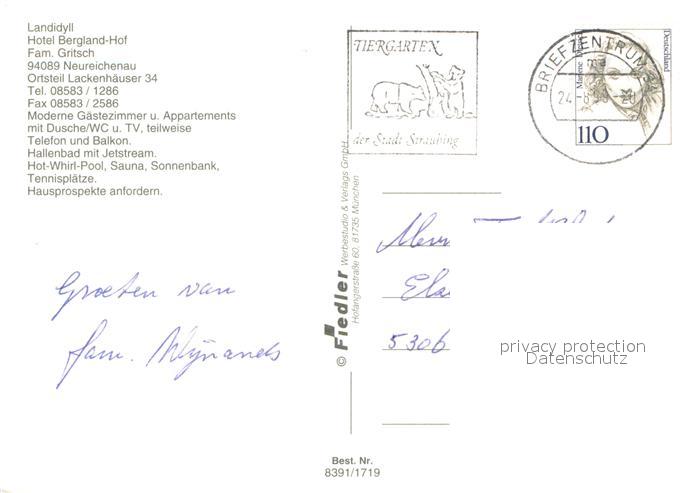 Landidyll
Hotel Bergland-Hof
Fam. Gritsch
94089 Neureichenau
Ortsteil Lackenhäuser 34
Tel. 08583 / 1286
Fax 08583 / 2586
Moderne Gästezimmer u. Appartements
mit Dusche/WC u. TV, teilweise
Telefon und Balkon.
Hallenbad mit Jetstream.
Hot-Whirl-Pool, Sauna, Sonnenbank,
Tennisplätze.
Hausprospekte anfordern.
Groeten van
fam. Wijnands
© Fiedler Werbestudio & Verlags GmbH
Hofangerstraße 60, 81735 München
Best. Nr.
8391/1719
TIERGARTEN
der Stadt Straubing
BRIEFZENTRUM
ma
Deutschland
Marlene
110
5306
privacy protection
Datenschutz